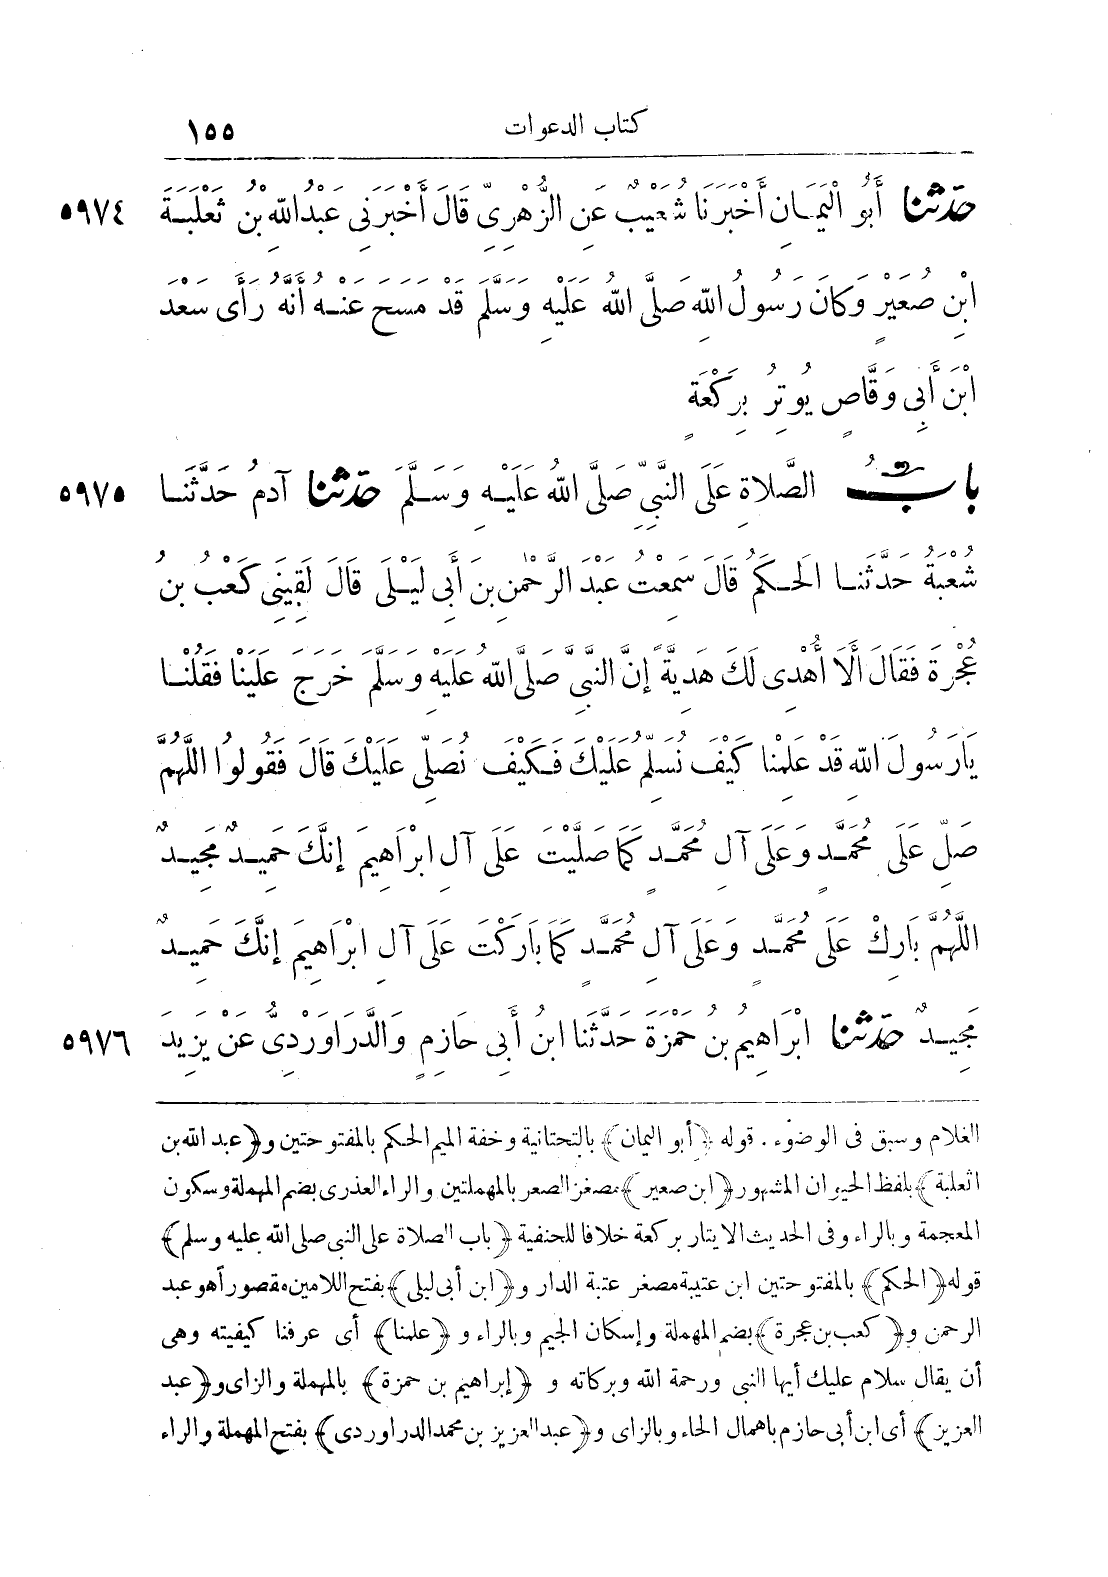 كتاب الدعوات ١٥٥
٥٩٧٤ حَدَّثَنَا أَبُو الْيَمَانِ أَخْبَرَنَا شُعَيْبٌ عَنِ الزُّهْرِيِّ قَالَ أَخْبَرَنِي عَبْدُ اللَّهِ بْنُ ثَعْلَبَةَ
ابْنِ صُعَيْرٍ وَكَانَ رَسُولُ اللَّهِ صَلَّى اللَّهُ عَلَيْهِ وَسَلَّمَ قَدْ مَسَحَ عَنْهُ أَنَّهُ رَأَى سَعْدَ
ابْنَ أَبِي وَقَّاصٍ يُوتِرُ بِرَكْعَةٍ
٥٩٧٥ بَابُ الصَّلَاةِ عَلَى النَّبِيِّ صَلَّى اللَّهُ عَلَيْهِ وَسَلَّمَ حَدَّثَنَا آدَمُ حَدَّثَنَا
شُعْبَةُ حَدَّثَنَا الْحَكَمُ قَالَ سَمِعْتُ عَبْدَ الرَّحْمٰنِ بْنَ أَبِي لَيْلَى قَالَ لَقِيَنِي كَعْبُ بْنُ
عُجْرَةَ فَقَالَ أَلَا أُهْدِي لَكَ هَدِيَّةً إِنَّ النَّبِيَّ صَلَّى اللَّهُ عَلَيْهِ وَسَلَّمَ خَرَجَ عَلَيْنَا فَقُلْنَا
يَا رَسُولَ اللَّهِ قَدْ عَلِمْنَا كَيْفَ نُسَلِّمُ عَلَيْكَ فَكَيْفَ نُصَلِّي عَلَيْكَ قَالَ فَقُولُوا اللَّهُمَّ
صَلِّ عَلَى مُحَمَّدٍ وَعَلَى آلِ مُحَمَّدٍ كَمَا صَلَّيْتَ عَلَى آلِ ابْرَاهِيمَ إِنَّكَ حَمِيدٌ مَجِيدٌ
اللَّهُمَّ بَارِكْ عَلَى مُحَمَّدٍ وَعَلَى آلِ مُحَمَّدٍ كَمَا بَارَكْتَ عَلَى آلِ ابْرَاهِيمَ إِنَّكَ حَمِيدٌ
٥٩٧٦ مَجِيدٌ حَدَّثَنَا ابْرَاهِيمُ بْنُ حَمْزَةَ حَدَّثَنَا ابْنُ أَبِي حَازِمٍ وَالدَّرَاوَرْدِيُّ عَنْ يَزِيدَ
الغلام وسبق فى الوضوء . قوله ﴿أبو اليمان﴾ بالتحتانية وخفة الميم الحكم بالمفتوحتين و﴿عبد الله بن
الثعلبة﴾ بلفظ الحيوان المشهور ﴿ابن صعير﴾ مصغر الصعر بالمهملتين والراء العذرى بضم المهملة وسكون
المعجمة وبالراء وفى الحديث الايتار بركعة خلافا للحنفية ﴿باب الصلاة على النبى صلى الله عليه وسلم﴾
قوله ﴿الحكم﴾ بالمفتوحتين ابن عتيبة مصغر عتبة الدار و﴿ابن أبى ليلى﴾ بفتح اللامين مقصوراً هو عبد
الرحمن و﴿كعب بن عجرة﴾ بضم المهملة وإسكان الجيم وبالراء و﴿علمنا﴾ أى عرفنا كيفيته وهى
أن يقال سلام عليك أيها النبى ورحمة الله وبركاته و ﴿إبراهيم بن حمزة﴾ بالمهملة والزاى و﴿عبد
العزيز﴾ أى ابن أبى حازم باهمال الحاء وبالزاى و﴿عبد العزيز بن محمد الدراوردى﴾ بفتح المهملة والراء